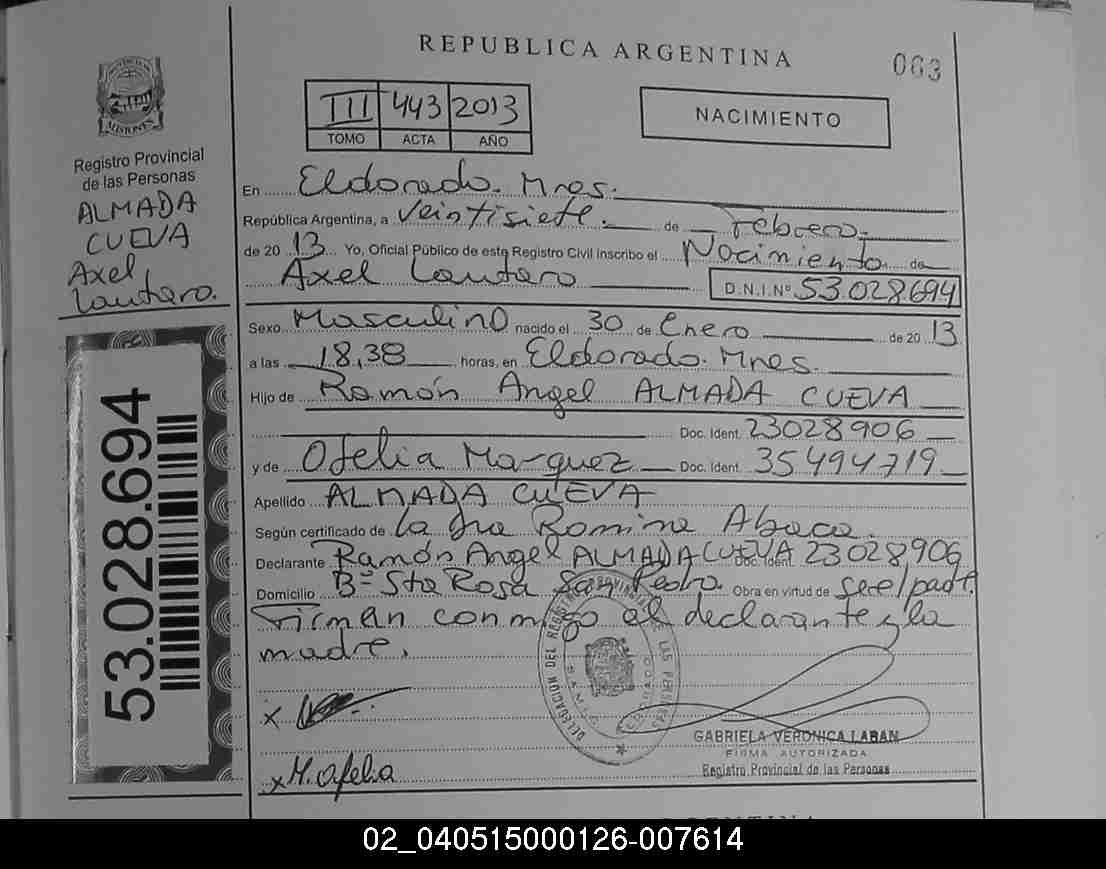 REPUBLICA ARGENTINA
063
PROVINCIA DE
MISIONES
Registro Provincial
de las Personas
ALMADA
CUEVA
Axel,
Lautaro.
53.028.694
III 443 2013
TOMO ACTA AÑO
NACIMIENTO
En Eldorado. Mnes.
República Argentina, a veintisiete. de Febrero.
de 20 13 Yo, Oficial Público de este Registro Civil inscribo el Nacimiento de
Axel Lautaro D.N.I.Nº 53.028.694
Sexo Masculino nacido el 30 de Enero de 20 13
a las 18,38 horas, en Eldorado. Mnes.
Hijo de Ramón Angel ALMADA CUEVA
Doc. Ident. 23028906
y de Ofelia Marquez Doc. Ident. 35494719
Apellido ALMADA CUEVA
Según certificado de la Dra Romina
Declarante Ramón Angel ALMADA CUEVA Doc. Ident. 23028,906
Domicilio Bº Sta Rosa San Pedro. Obra en virtud de ser el padre.
Firman conmigo el declarante y la
madre.
DELEGACION DEL REGISTRO PROVINCIAL DE LAS PERSONAS
ELDORADO
X
x M. Ofelia
GABRIELA VERONICA LABAN
FIRMA AUTORIZADA
Registro Provincial de las Personas
02_040515000126-007614